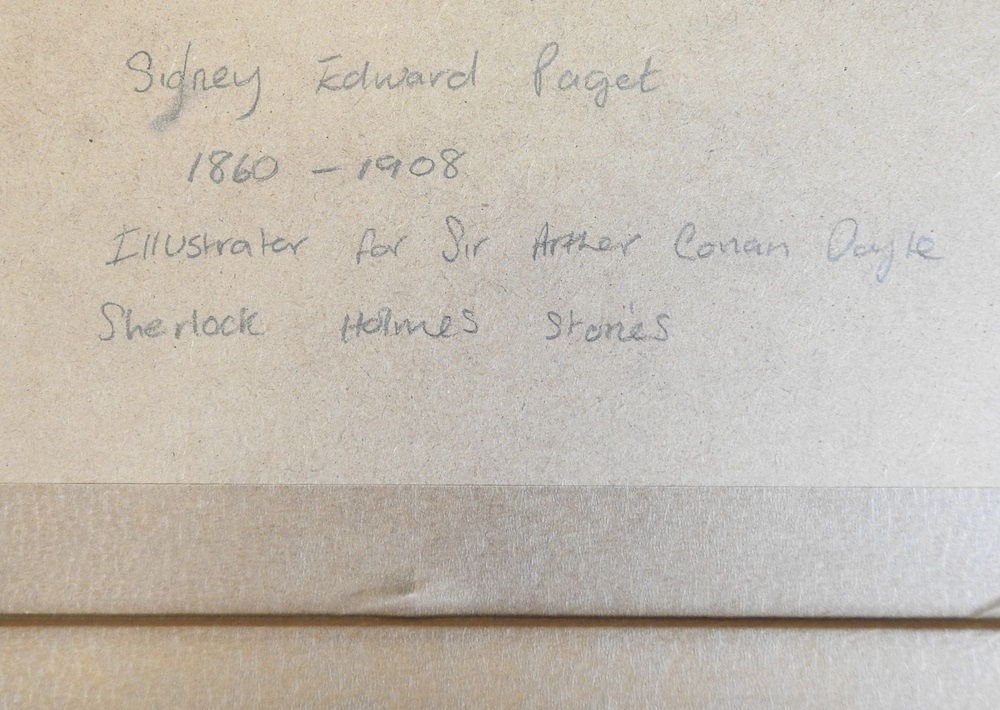 Sidney Edward Paget
1860 - 1908
Illustrator for Sir Arther Conan Doyle
Sherlock Holmes Stories